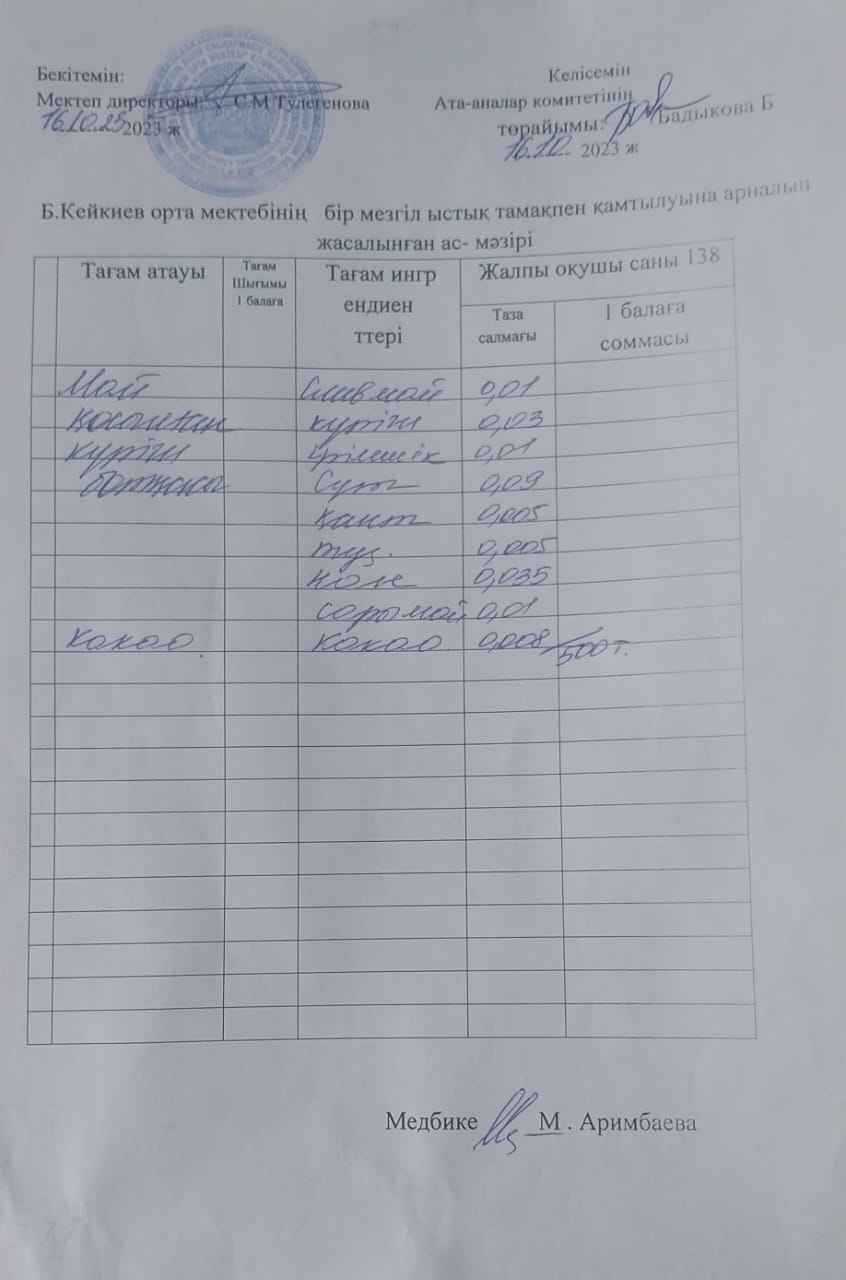 Бекітемін:
Мектеп директоры: С.М Тулегенова
16.10.23 2023 ж
Келісемін
Ата-аналар комитетінің
төрайымы: Бадыкова Б
16.10. 2023 ж
Б.Кейкиев орта мектебінің бір мезгіл ыстық тамақпен қамтылуына арналып
жасалынған ас- мәзірі
Тағам атауы
Тағам
Шығымы
1 балаға
Тағам ингр
ендиен
ттері
Жалпы оқушы саны 138
Таза
салмағы
1 балаға
соммасы
Май Сливмай 0,01
қосылған күріш 0,03
күріш ірімшік 0,01
ботқасы Сүт 0,09
қант 0,005
тұз. 0,005
нан 0,035
сарымай 0,01
Какао Какао 0,008 500т.
Медбике М . Аримбаева